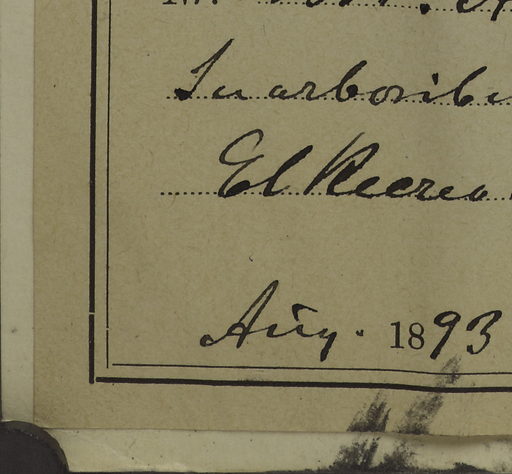 In arboribu
El Recreo
Aug. 1893